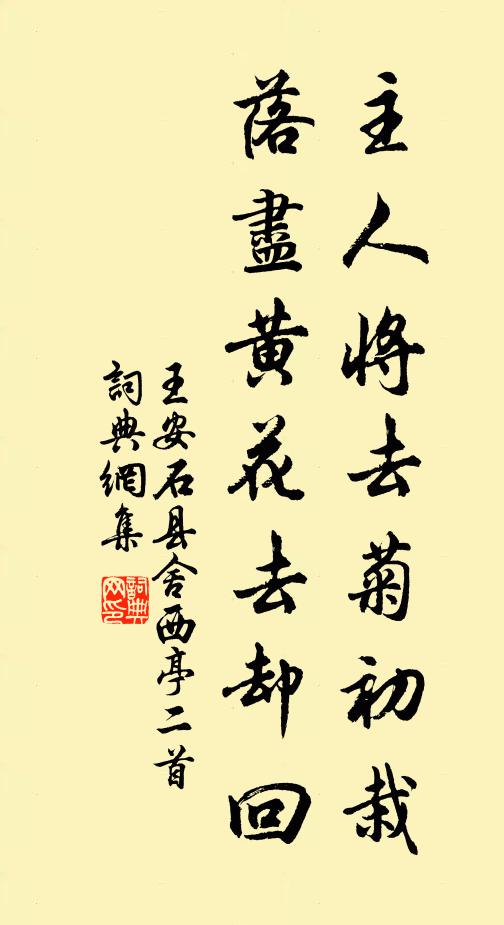 主人將去菊初栽
落盡黄花去却回
王安石县舍西亭二首
詞典網集
詞典網印